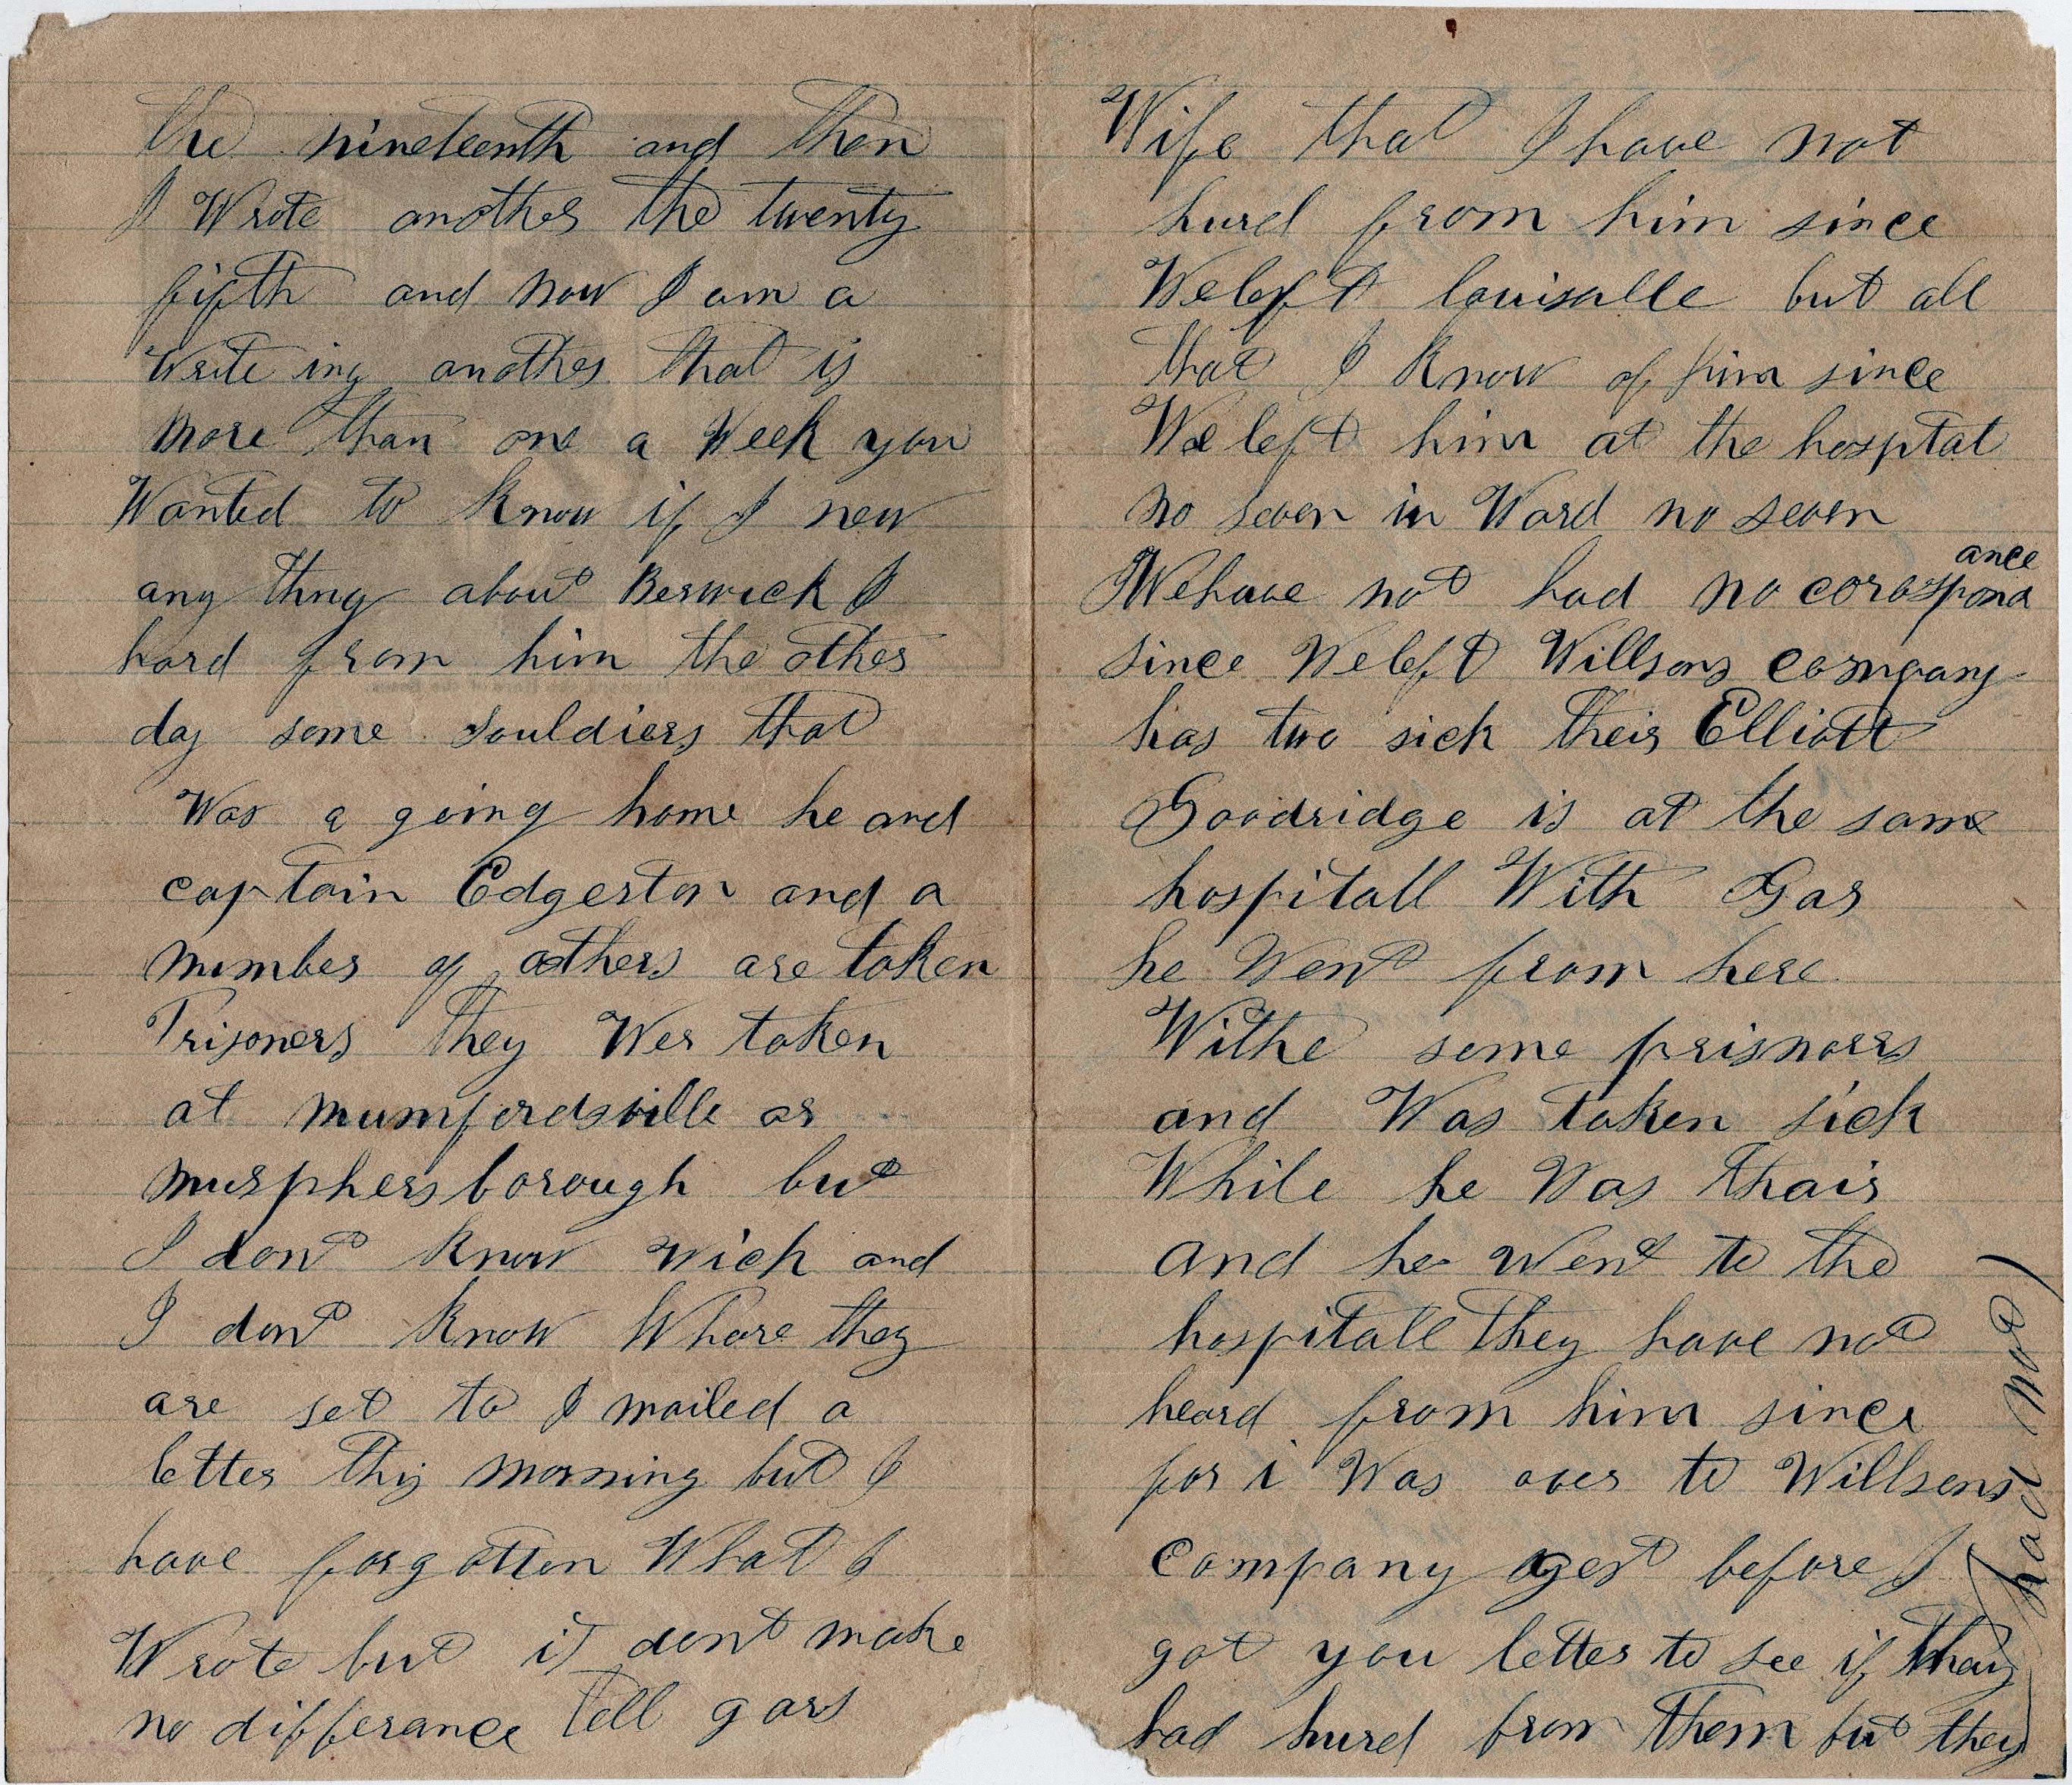 the nineteenth and then
I Wrote another the twenty
fifth and now I am a
Write ing another that is
more than one a Week you
Wanted to know if I new
any thng about Berwick I
hard from him the other
day some souldiers that
Was a going home he and
captain Edgerton and a
number of others are taken
Prisoners they Wer taken
at mumfordsville or
murphersborough but
I dont know wich and
I dont know Whare they
are set to I mailed a
letter this morning but I
have forgotten What I
Wrote but it dont make
no differance tell gars
Wife that I have not
hurd from him since
We left louisalle but all
that I know of him since
We left him at the hosptal
no seven in Ward no seven
We have not had no corospond
ance
since We left Willsons company
has two sick their Elliott
Goodridge is at the same
hospitall With Gar
he Went from here
Withe some prisnorrs
and Was taken sick
While he Was thair
and he Went to the
hospitall they have not
heard from him since
for i Was over to Willsons
company gest before I
got you letter to see if thay
had hurd from them but they
had not